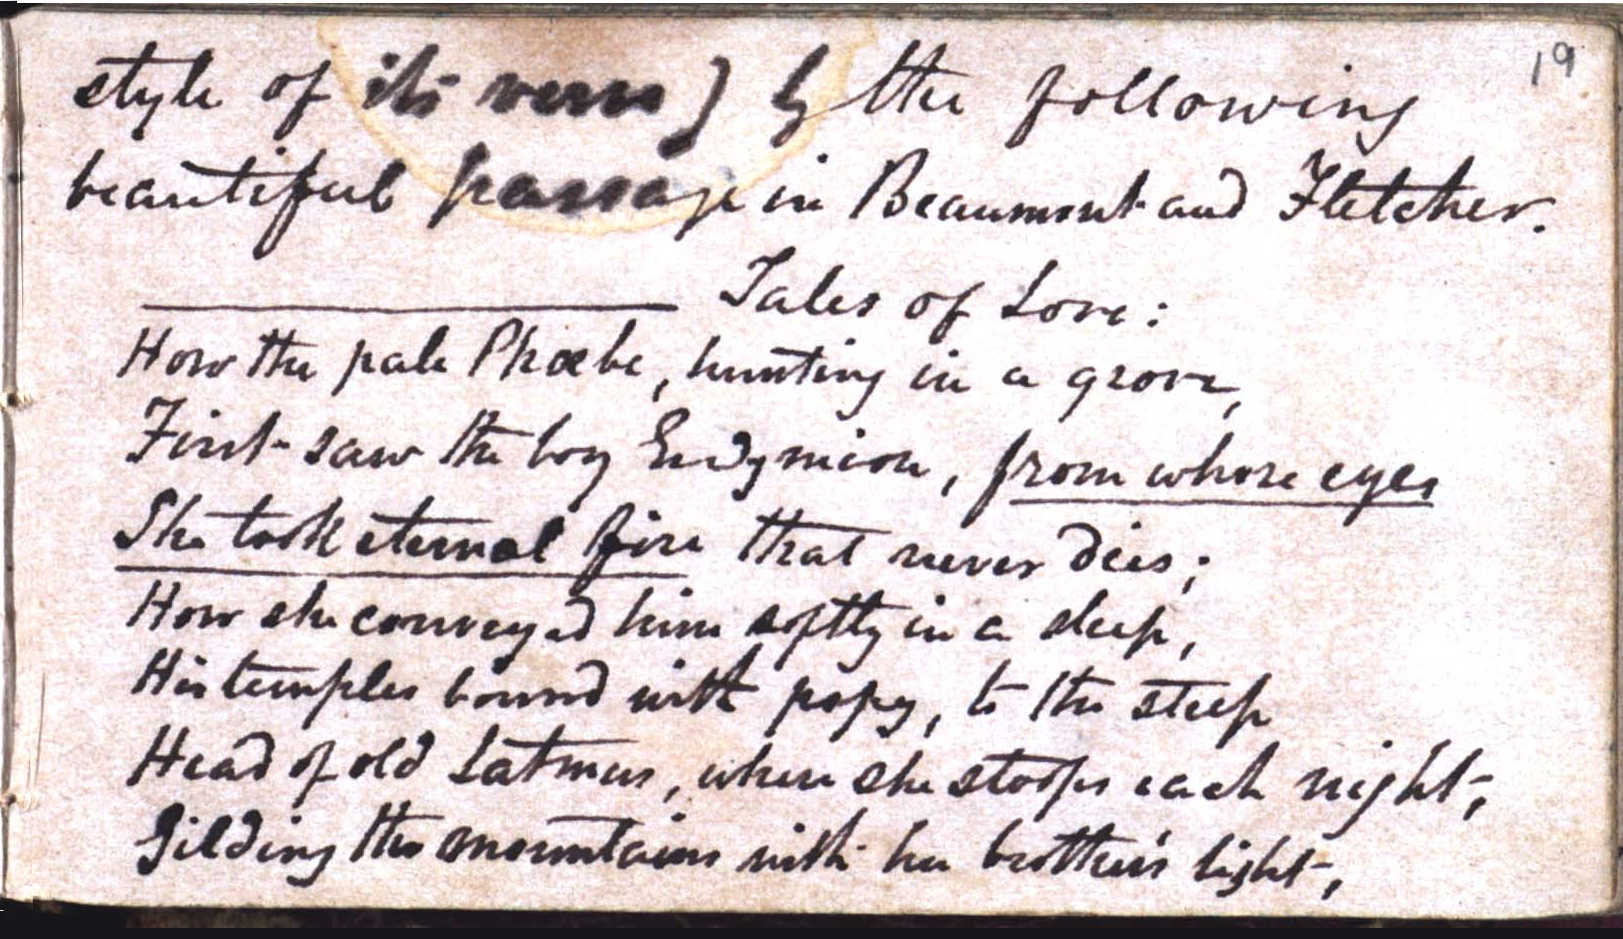 19
style of its verse) by the following
beautiful passage in Beaumont and Fletcher.
Tales of Love:
How the pale Phœbe, hunting in a grove,
First saw the boy Endymion, from whose eyes
She took eternal fire that never dies;
How she conveyed him softly in a sleep,
His temples bound with popy, to the steep
Head of old Latmus, where she stoops each night,
Gilding the mountains with her brother's light,